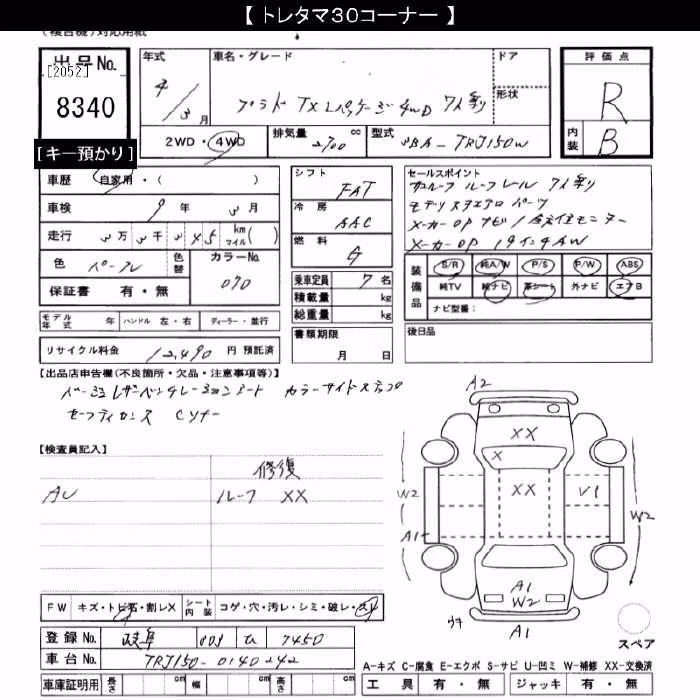 【 トレタマ30コーナー 】
(複合機)対応用紙
出品No.
[2052]
8340
[キー預かり]
年式
4/3月
車名・グレード
プラド TX Lパッケージ 4WD 7人乗り
ドア
形状
評価点
R
内装
B
2WD・4WD
排気量 2700 cc
型式 CBA-TRJ150W
車歴 自家用・( )
車検 9年 3月
走行 3万3千 km マイル( )
色 パール
色替
カラーNo.
070
保証書 有・無
シフト
FAT
冷房
AAC
燃料
G
乗車定員 7名
積載量 kg
総重量 kg
セールスポイント
サンルーフ ルーフレール 7人乗り
モデリスタエアロパーツ
メーカーOP 19インチAW
装備品
S/R 純A/W P/S P/W ABS
純TV 純ナビ 革シート 外ナビ エアB
ナビ型量:
モデル年式 年 ハンドル 左・右 ディーラー・並行
書類期限
月 日
後日品
リサイクル料金 12,490 円 預託済
【出品店申告欄(不良箇所・欠品・注意事項等)】
カラーサイドステップ
【検査員記入】
修復
AU
ルーフ XX
A2
XX
X
XX
V1
W2
W2
A1
A1
W2
A1
スペア
FW キズ・トビ石・割レX シート内装 コゲ・穴・汚レ・シミ・破レ・スレ
登録No. 岐阜 303 ひ 7450
車台No. TRJ150-0140242
車庫証明用 長さ cm 幅 cm 高さ cm
A-キズ C-腐食 E-エクボ S-サビ U-凹ミ W-補修 XX-交換済
工具 有・無 ジャッキ 有・無